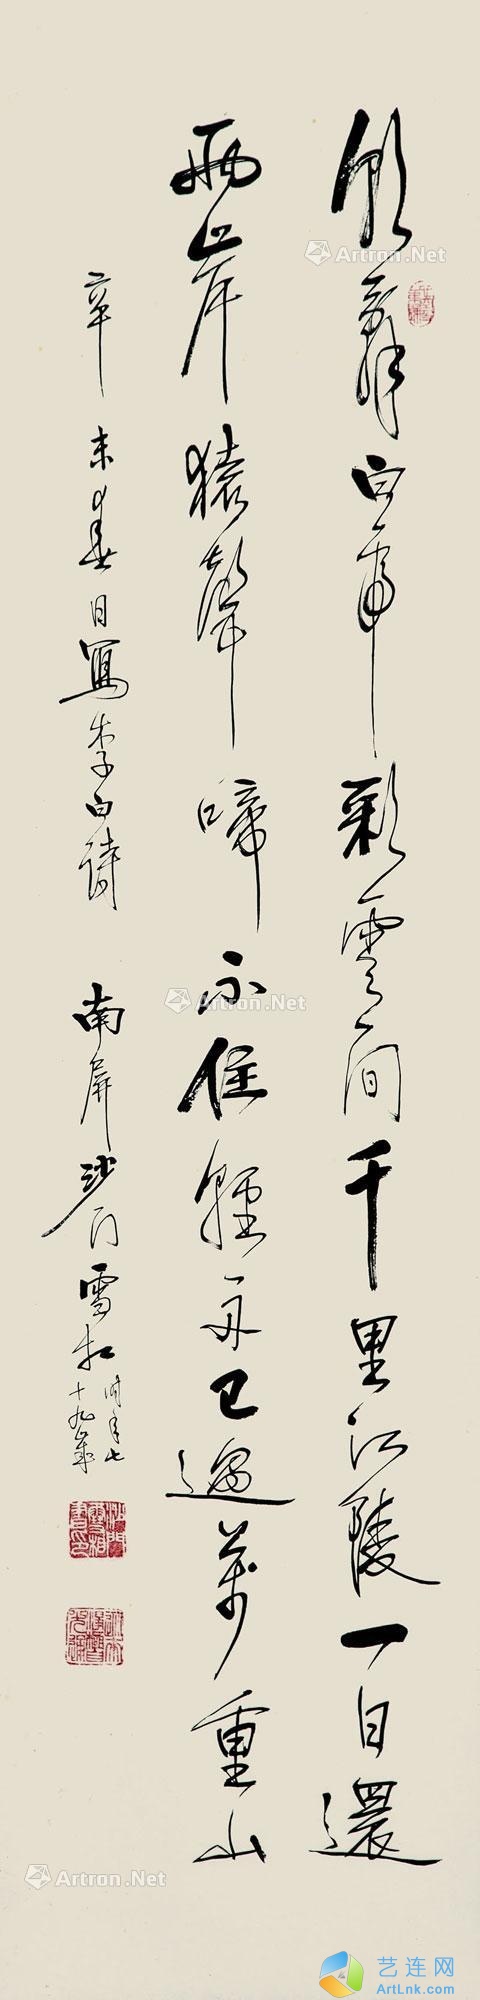 朝辭白帝彩雲間千里江陵一日還
兩岸猿聲啼不住輕舟已過萬重山
辛未春日寫李白詩 南屏沙門雪相 時年七十九歲
Artron.Net
Artron.Net
Artron.Net
Artron.Net
Artron.Net
艺连网
ArtLnk.com